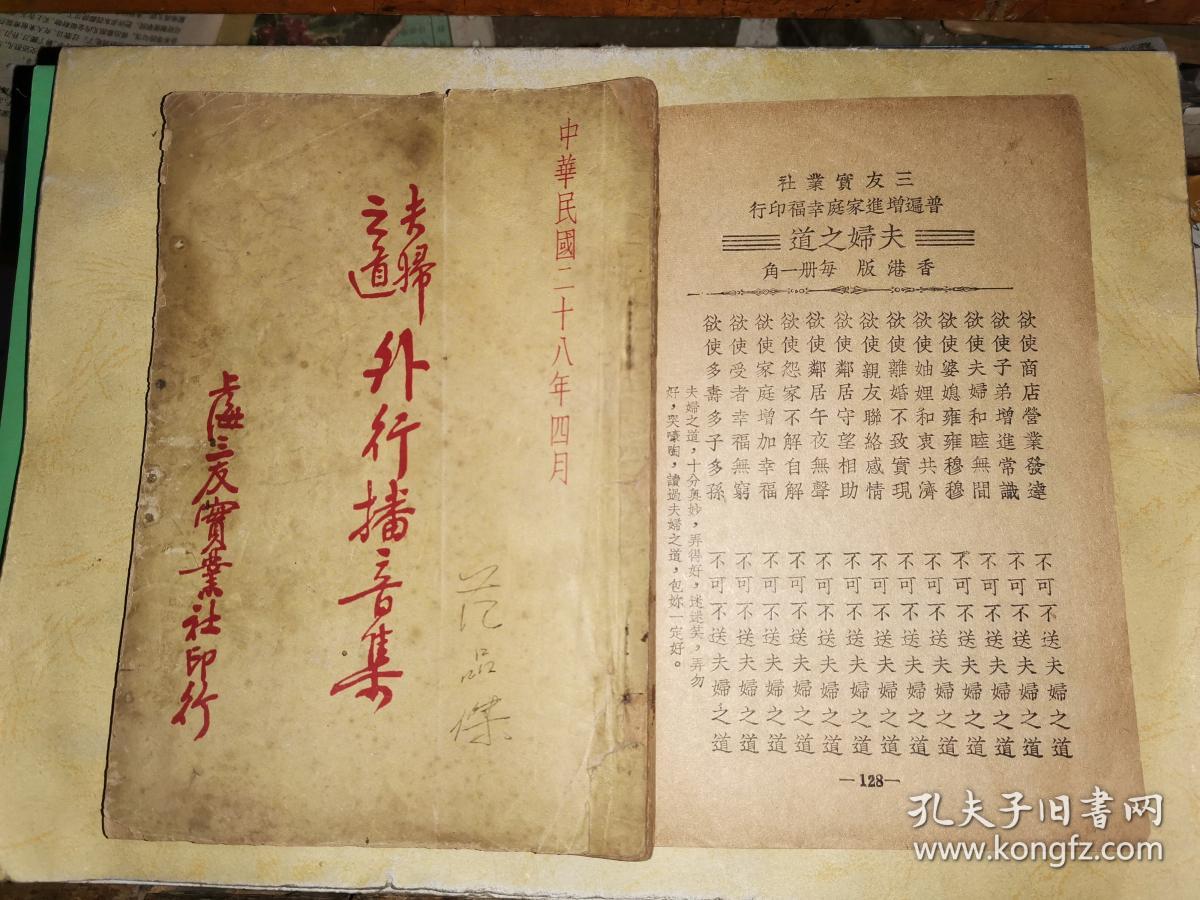 中華民國二十八年四月
夫婦之道
外行播音集
上海三友實業社印行
范品傑
三友實業社
普遍增進家庭幸福印行
夫婦之道
香港版 每册一角
欲使商店營業發達 不可不送夫婦之道
欲使子弟增進常識 不可不送夫婦之道
欲使夫婦和睦無間 不可不送夫婦之道
欲使婆媳雍雍穆穆 不可不送夫婦之道
欲使妯娌和衷共濟 不可不送夫婦之道
欲使離婚不致實現 不可不送夫婦之道
欲使親友聯絡感情 不可不送夫婦之道
欲使鄰居守望相助 不可不送夫婦之道
欲使鄰居午夜無聲 不可不送夫婦之道
欲使怨家不解自解 不可不送夫婦之道
欲使家庭增加幸福 不可不送夫婦之道
欲使受者幸福無窮 不可不送夫婦之道
欲使多壽多子多孫 不可不送夫婦之道
夫婦之道，十分奥妙，弄得好，迷迷笑，弄勿
好，哭嚎啕，讀過夫婦之道，包妳一定好。
—128—
孔夫子旧书网
www.kongfz.com